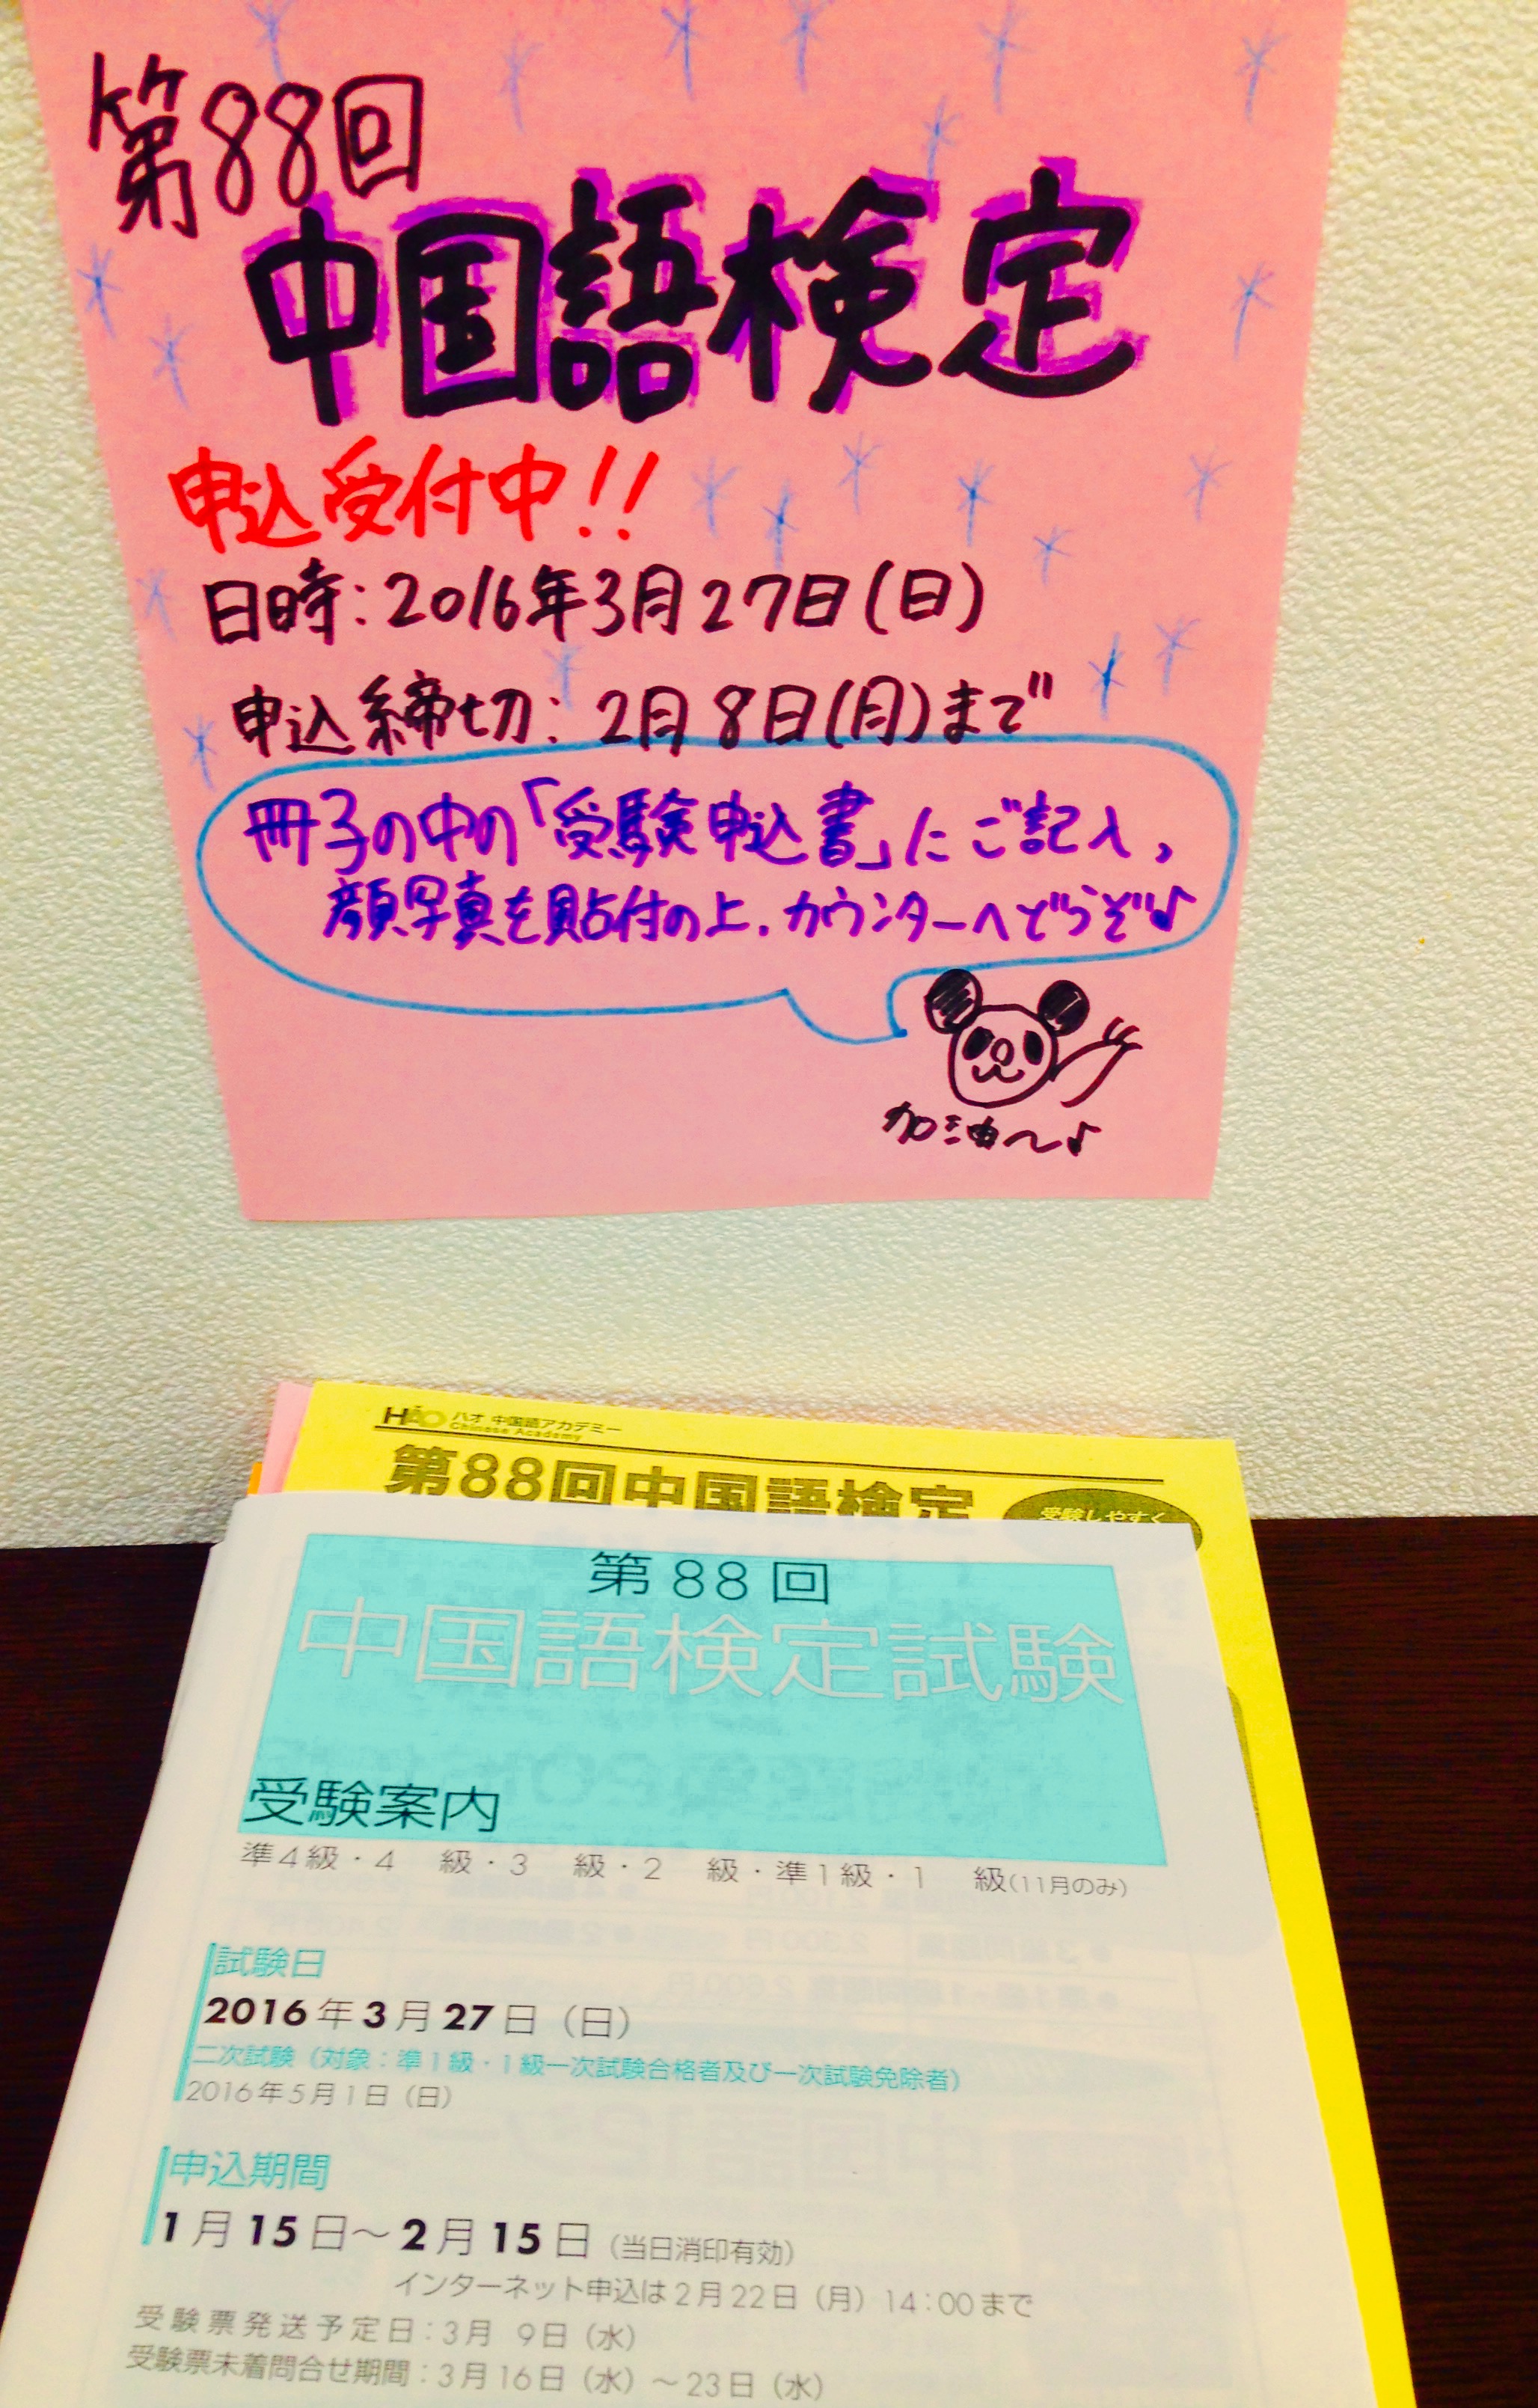 第88回
中国語検定
申込受付中!!
日時:2016年3月27日(日)
申込締切:2月8日(月)まで
冊子の中の「受験申込書」にご記入,
顔写真を貼付の上.カウンターへどうぞ♪
加油〜♪
HAO ハオ 中国語アカデミー
Chinese Academy
第88回中国語検定
受験しやすく
第88回
中国語検定試験
受験案内
準4級・4 級・3 級・2 級・準1級・1 級(11月のみ)
試験日
2016年3月27日(日)
二次試験(対象:準1級・1級一次試験合格者及び一次試験免除者)
2016年5月1日(日)
申込期間
1月15日〜2月15日(当日消印有効)
インターネット申込は2月22日(月)14:00まで
受験票発送予定日:3月 9日(水)
受験票未着問合せ期間:3月16日(水)〜23日(水)